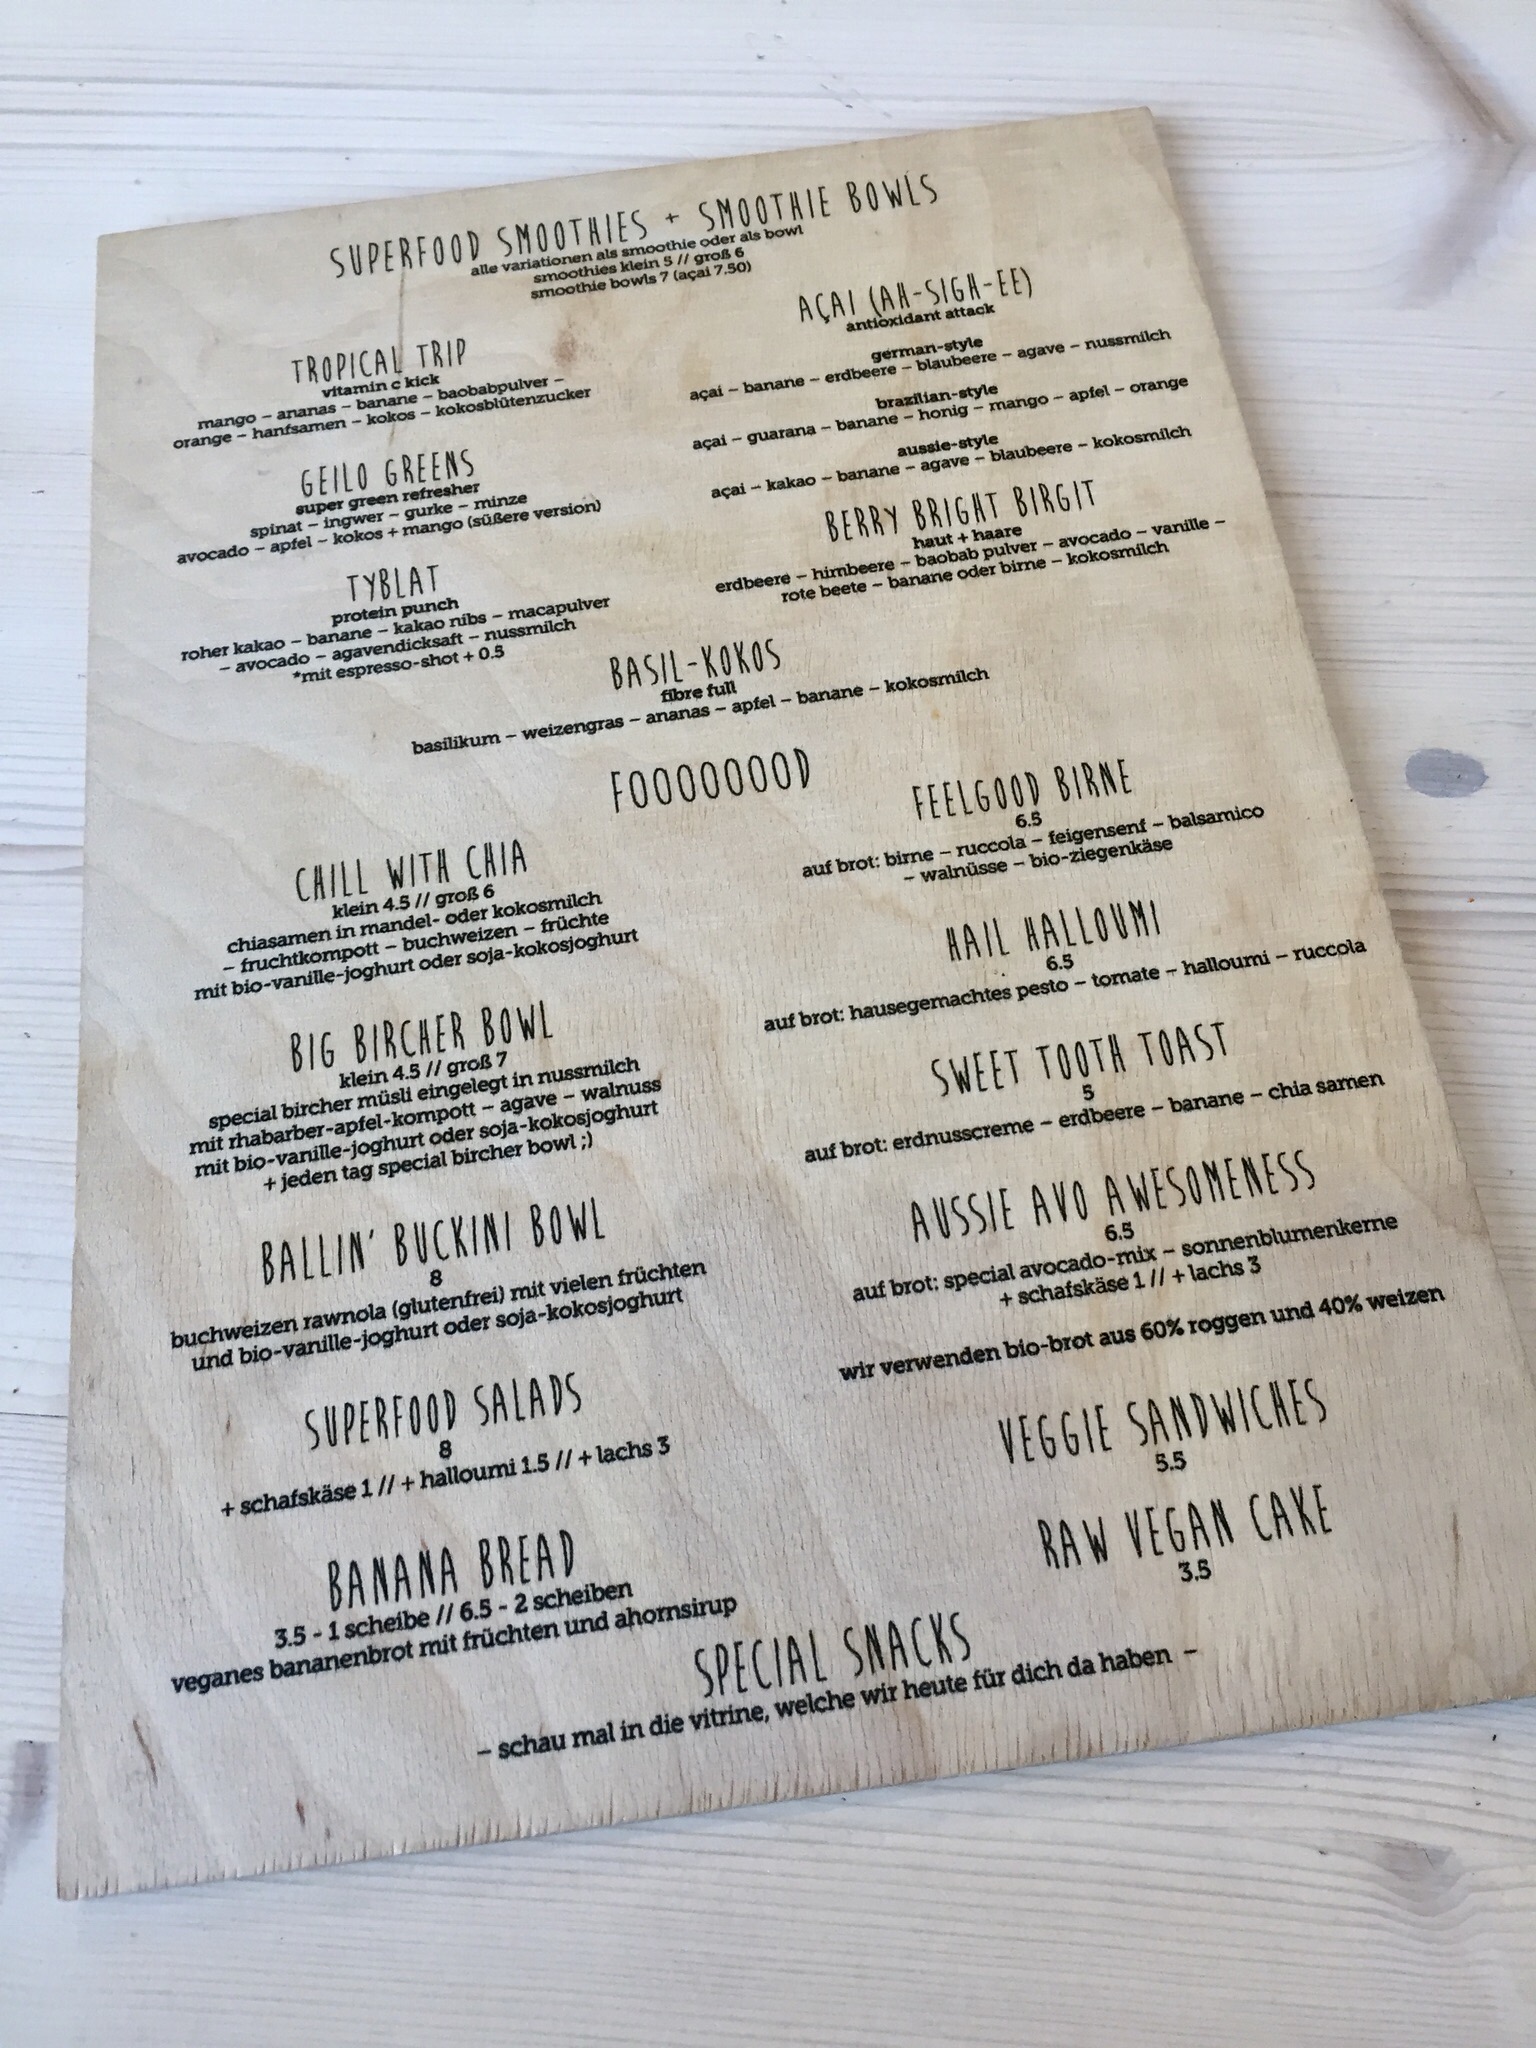 SUPERFOOD SMOOTHIES + SMOOTHIE BOWLS
alle variationen als smoothie oder als bowl
smoothies klein 5 // groß 6
smoothie bowls 7 (açai 7.50)
TROPICAL TRIP
vitamin c kick
mango – ananas – banane – baobabpulver –
orange – hanfsamen – kokos – kokosblütenzucker
GEILO GREENS
super green refresher
spinat – ingwer – gurke – minze
avocado – apfel – kokos + mango (süßere version)
TYBLAT
protein punch
roher kakao – banane – kakao nibs – macapulver
– avocado – agavendicksaft – nussmilch
*mit espresso-shot + 0.5
AÇAI (AH-SIGH-EE)
antioxidant attack
german-style
açai – banane – erdbeere – blaubeere – agave – nussmilch
brazilian-style
açai – guarana – banane – honig – mango – apfel – orange
aussie-style
açai – kakao – banane – agave – blaubeere – kokosmilch
BERRY BRIGHT BIRGIT
haut + haare
erdbeere – himbeere – baobab pulver – avocado – vanille –
rote beete – banane oder birne – kokosmilch
BASIL-KOKOS
fibre full
basilikum – weizengras – ananas – apfel – banane – kokosmilch
FOOOOOOOD
CHILL WITH CHIA
klein 4.5 // groß 6
chiasamen in mandel- oder kokosmilch
– fruchtkompott – buchweizen – früchte
mit bio-vanille-joghurt oder soja-kokosjoghurt
BIG BIRCHER BOWL
klein 4.5 // groß 7
special bircher müsli eingelegt in nussmilch
mit rhabarber-apfel-kompott – agave – walnuss
mit bio-vanille-joghurt oder soja-kokosjoghurt
+ jeden tag special bircher bowl ;)
BALLIN' BUCKINI BOWL
8
buchweizen rawnola (glutenfrei) mit vielen früchten
und bio-vanille-joghurt oder soja-kokosjoghurt
SUPERFOOD SALADS
8
+ schafskäse 1 // + halloumi 1.5 // + lachs 3
BANANA BREAD
3.5 - 1 scheibe // 6.5 - 2 scheiben
veganes bananenbrot mit früchten und ahornsirup
FEELGOOD BIRNE
6.5
auf brot: birne – ruccola – feigensenf – balsamico
– walnüsse – bio-ziegenkäse
HAIL HALLOUMI
6.5
auf brot: hausegemachtes pesto – tomate – halloumi – ruccola
SWEET TOOTH TOAST
5
auf brot: erdnusscreme – erdbeere – banane – chia samen
AUSSIE AVO AWESOMENESS
6.5
auf brot: special avocado-mix – sonnenblumenkerne
+ schafskäse 1 // + lachs 3
wir verwenden bio-brot aus 60% roggen und 40% weizen
VEGGIE SANDWICHES
5.5
RAW VEGAN CAKE
3.5
SPECIAL SNACKS
– schau mal in die vitrine, welche wir heute für dich da haben –